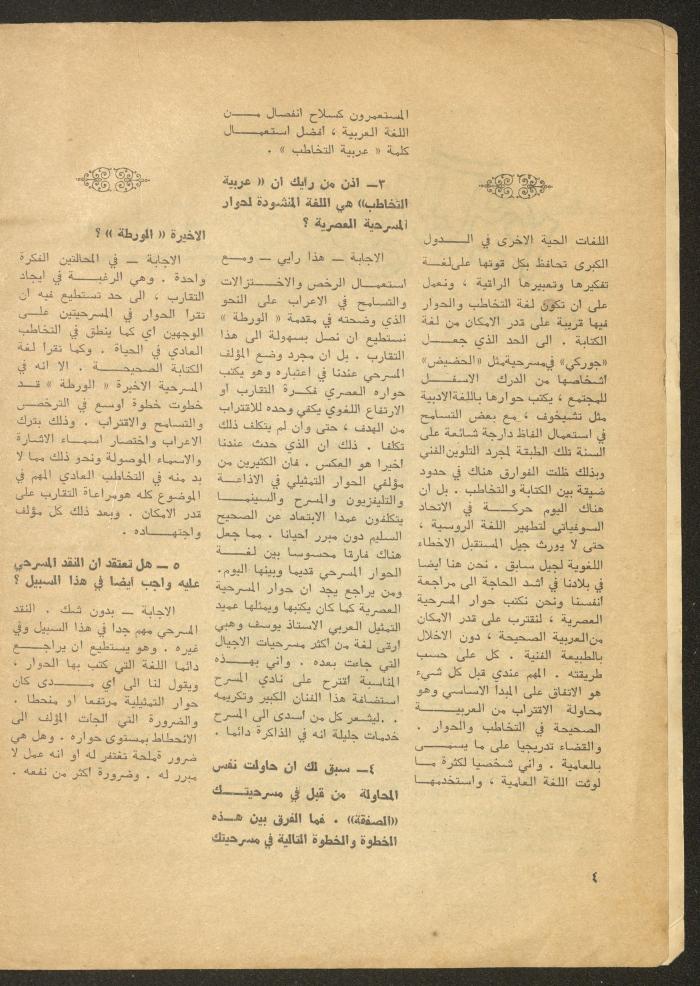 اللغات الحية الاخرى في الـــدول
الكبرى تحافظ بكل قوتها على لغـة
تفكيرها وتعبيرها الراقية ، ونعمل
على ان تكون لغة التخاطب والحوار
فيها قريبة على قدر الامكان من لغة
الكتابة . الى الحد الذي جعـــل
«جوركي» في مسرحيةمثل «الحضيض»
اشخاصها من الدرك الاسفـــل
للمجتمع ، يكتب حوارها باللغةالادبية
مثل تشيخوف ، مع بعض التسامح
في استعمال الفاظ دارجة شائعة على
السنة تلك الطبقة لمجرد التلوين الفني
وبذلك ظلت الفوارق هناك في حدود
ضيقة بين الكتابة والتخاطب . بل ان
هناك اليوم حركـــة في الاتحاد
السوفياتي لتطهير اللغة الروسية ،
حتى لا يورث جيل المستقبل الاخطاء
اللغوية لجيل سابق . نحن هنا ايضا
في بلادنا في اشد الحاجة الى مراجعة
انفسنا ونحن نكتب حوار المسرحية
العصرية ، لنقترب على قدر الامكان
من العربية الصحيحة ، دون الاخلال
بالطبيعة الفنية . كل على حسب
طريقته . المهم عندي قبل كل شيء
هو الاتفاق على المبدأ الاساسي وهو
محاولة الاقتراب من العربيـــة
الصحيحة في التخاطب والحوار .
والقضاء تدريجيا على ما يسمـى
بالعامية . واني شخصيا لكثرة ما
لوثت اللغة العامية ، واستخدمهـا
المستعمرون كسلاح انفصال مـــن
اللغة العربية ، أفضل استعمـــال
كلمة « عربية التخاطب » .
٣ـ اذن من رايك ان « عربية
التخاطب» هي اللغة المنشودة لحوار
المسرحية العصرية ؟
الاجابة ـ هذا رايي ـ ومـع
استعمـال الرخص والاختـــزالات
والتسامح في الاعراب على النحو
الذي وضحته في مقدمة « الورطة »
نستطيع ان نصل بسهولة الى هذا
التقارب . بل ان مجرد وضع المؤلف
المسرحي عندنا في اعتباره وهو يكتب
حواره العصري فكـرة التقارب او
الارتفاع اللغوي يكفي وحده للاقتراب
من الهدف ، حتى وان لم يتكلف ذلك
تكلفا . ذلك ان الذي حدث عندنا
اخيرا هو العكس . فان الكثيرين من
مؤلفي الحوار التمثيلي في الاذاعـة
والتليفزيون والمسرح والسينمـــا
يتكلفون عمدا الابتعاد عن الصحيح
السليم دون مبرر احيانا . مما جعل
هناك فارقا محسوسا بين لغـــة
الحوار المسرحي قديما وبينها اليوم.
ومن يراجع يجد ان حوار المسرحية
العصرية كما كان يكتبها ويمثلها عميد
التمثيل العربي الاستاذ يوسف وهبي
ارقى لغة من أكثر مسرحيات الاجيال
التي جاءت بعده . واني بهـــذه
المناسبة اقترح على نادي المسرح
استضافة هذا الفنان الكبير وتكريمه
. .ليشعر كل من أسدى الى المسرح
خدمات جليلة انه في الذاكرة دائما .
٤ـ سبق لك ان حاولت نفس
المحاولة من قبل في مسرحيتـــك
«الصفقة» . فما الفرق بين هـــذه
الخطوة والخطوة التالية في مسرحيتك
الاخيرة « الورطة » ؟
الاجابة ـ في المحالتين الفكرة
واحدة . وهي الرغبـــة في ايجاد
التقارب ، الى حد تستطيع فيه ان
تقرأ الحوار في المسرحيتين علـى
الوجهين اي كما ينطق في التخاطب
العادي في الحياة . وكما نقرا لغة
الكتابة الصحيحـــة . الا انه في
المسرحية الاخيرة « الورطة » قـــد
خطوت خطوة اوسع في الترخص
والتسامح والاقتراب . وذلك بترك
الاعراب واختصار اسمـاء الاشارة
والاسماء الموصولة ونحو ذلك مما لا
بد منه في التخاطب العادي المهم في
الموضوع كله هومراعاة التقارب على
قدر الامكان . وبعد ذلك كل مؤلف
واجتهـــاده .
٥ ـ هل تعتقد ان النقد المسرحي
عليه واجب ايضا في هذا السبيل ؟
الاجابة ـ بدون شك . النقد
المسرحي مهم جدا في هذا السبيل وفي
غيره . وهو يستطيع ان يراجـــع
دائما اللغة التي كتب بها الحوار ،
ويقول لنا الى أي مـــدى كان
حوار التمثيلية مرتفعا او منحطا .
والضرورة التي الجات المؤلف الى
الانحطاط بمستوى حواره . وهل هي
ضرور قملحة تغتفر له او انه عمل لا
مبرر له . وضرورة أكثر من نفعه .
٤